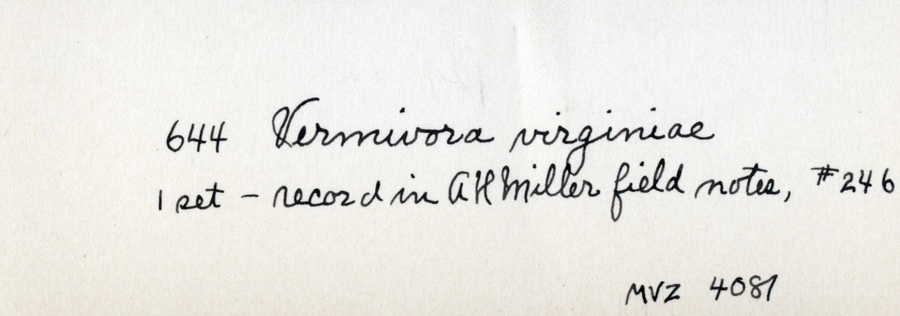 644 Vermivora virginiae
1 set - record in AHMiller field notes, #246
MVZ 4081